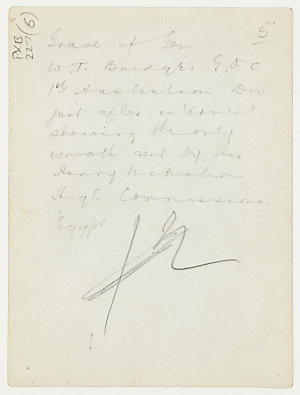 PXB
227
(6)
5
Grave of Gen
W.T. Bridges G.O.C
1st Australian Div
just after interment
showing the only
wreath sent by Sir
Henry McMahon
High Commissioner
Egypt